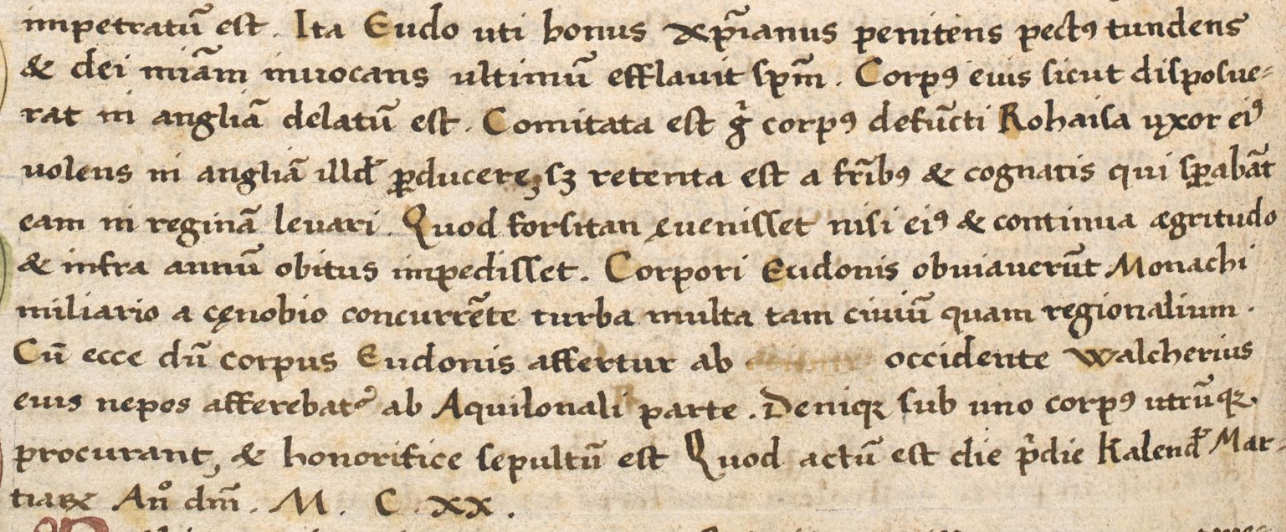 impetratū est. Ita Eudo uti bonus xp̄ianus penitens pectꝯ tundens
& dei miām inuocans ultimū efflauit sp̄m. Corpꝯ euis sicut disposue-
rat in angliā delatū est. Comitata est g̊ corpꝯ defūcti Rohaisa uxor eiꝯ
uolens in angliā illđ ꝑducere, sꝫ retenta est a fr̄ibꝯ & cognatis qui sꝑabāt
eam in reginā leuari. Quod forsitan euenisset nisi eiꝯ & continua ægritudo
& infra annū obitus impedisset. Corpori Eudonis obuiauerūt Monachi
miliario a cęnobio concurrēte turba multa tam ciuiū quam regionalium.
Cū ecce dū corpus Eudonis affertur ab occidente Walcherius
euis nepos afferebatᷣ ab Aquilonali parte. Deniqꝫ sub uno corpꝯ utrūqꝫ
procurant, & honorifice sepultū est Quod actū est die p̍die Kalenđ Mar-
tiaꝝ An̊ dm̄. M. C. XX.